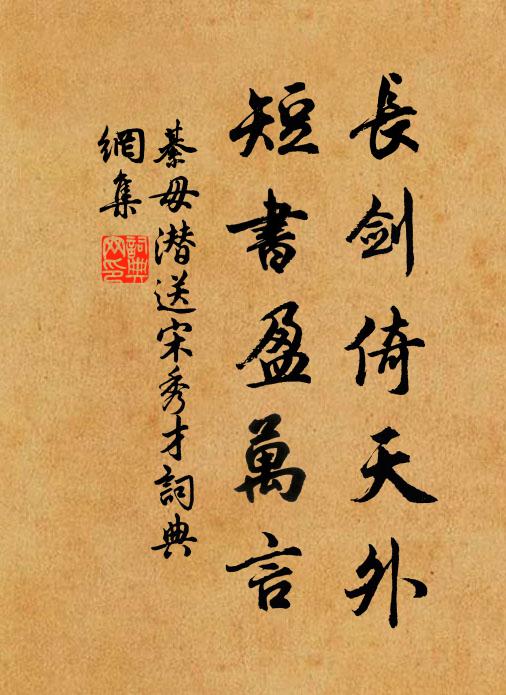 長劍倚天外
短書盈萬言
綦毋潜送宋秀才詞典
網集
詞典
网印